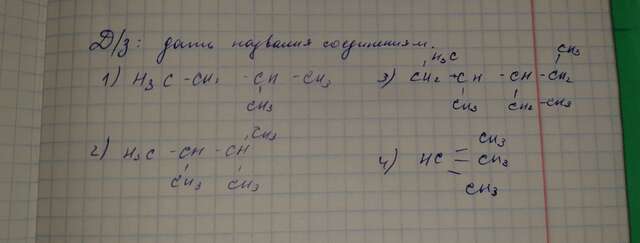 Д/з: дать названия соединениям.
1) H₃C - CH₂ - CH - CH₃
CH₃
2) H₃C - CH - CH
CH₃
CH₃ CH₃
3) H₃C CH₃
CH₂ - CH - CH - CH₂
CH₃ CH₂ - CH₃
4) HC
CH₃
CH₃
CH₃